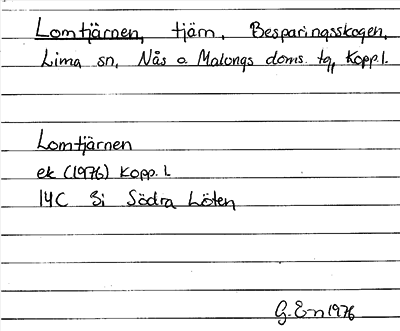 Lomtjärnen, tjärn, Besparingsskogen,
Lima sn, Nås o Malungs doms. tg, Kopp.l.
Lomtjärnen
ek (1976) Kopp. L
14C 3i Södra Löten
G. E-n 1976